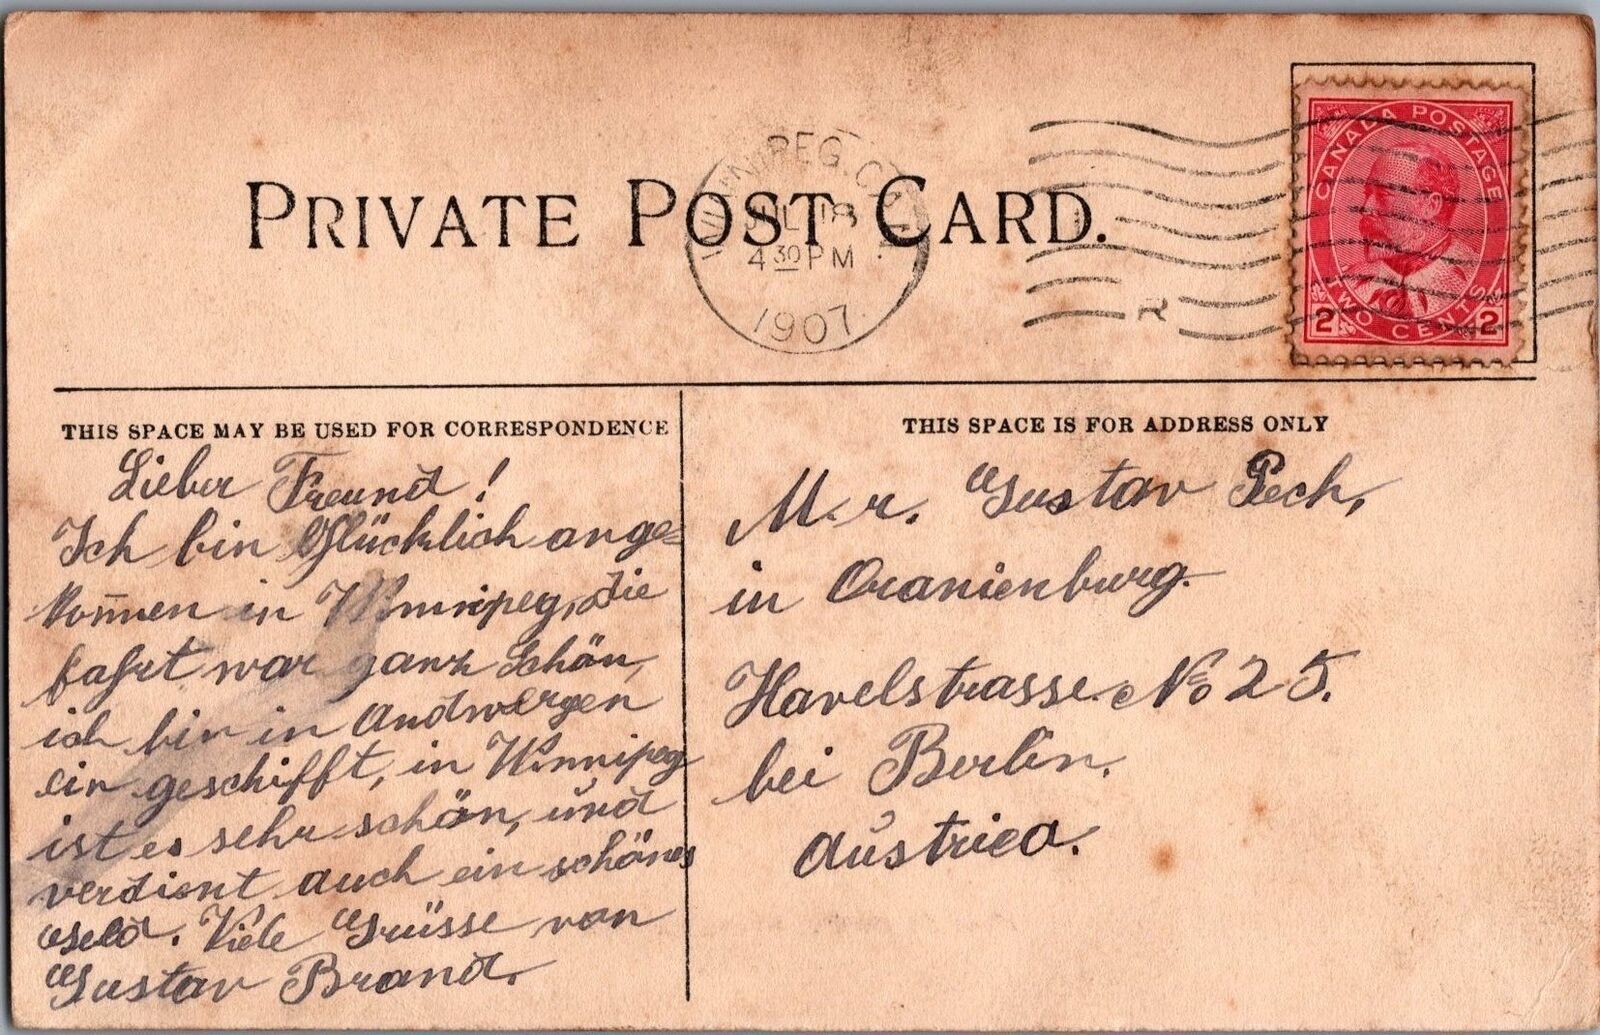 PRIVATE POST CARD.
WINNIPEG. CAN
JUL 18
4 30 PM
1907
R
CANADA POSTAGE
2 TWO CENTS 2
THIS SPACE MAY BE USED FOR CORRESPONDENCE
Lieber Freund!
Ich bin Glücklich ange=
kom̅en in Winnipeg, die
fahrt war ganz Schön,
ich bin in Andwergen
ein geschifft, in Winnipeg
ist es sehr schön, und
verdient auch ein schönes
Geld. Viele Grüsse von
Gustav Brand.
THIS SPACE IS FOR ADDRESS ONLY
M.r. Gustav Pech,
in Oranienburg.
Havelstrasse No 25.
bei Berlin.
Austriea.